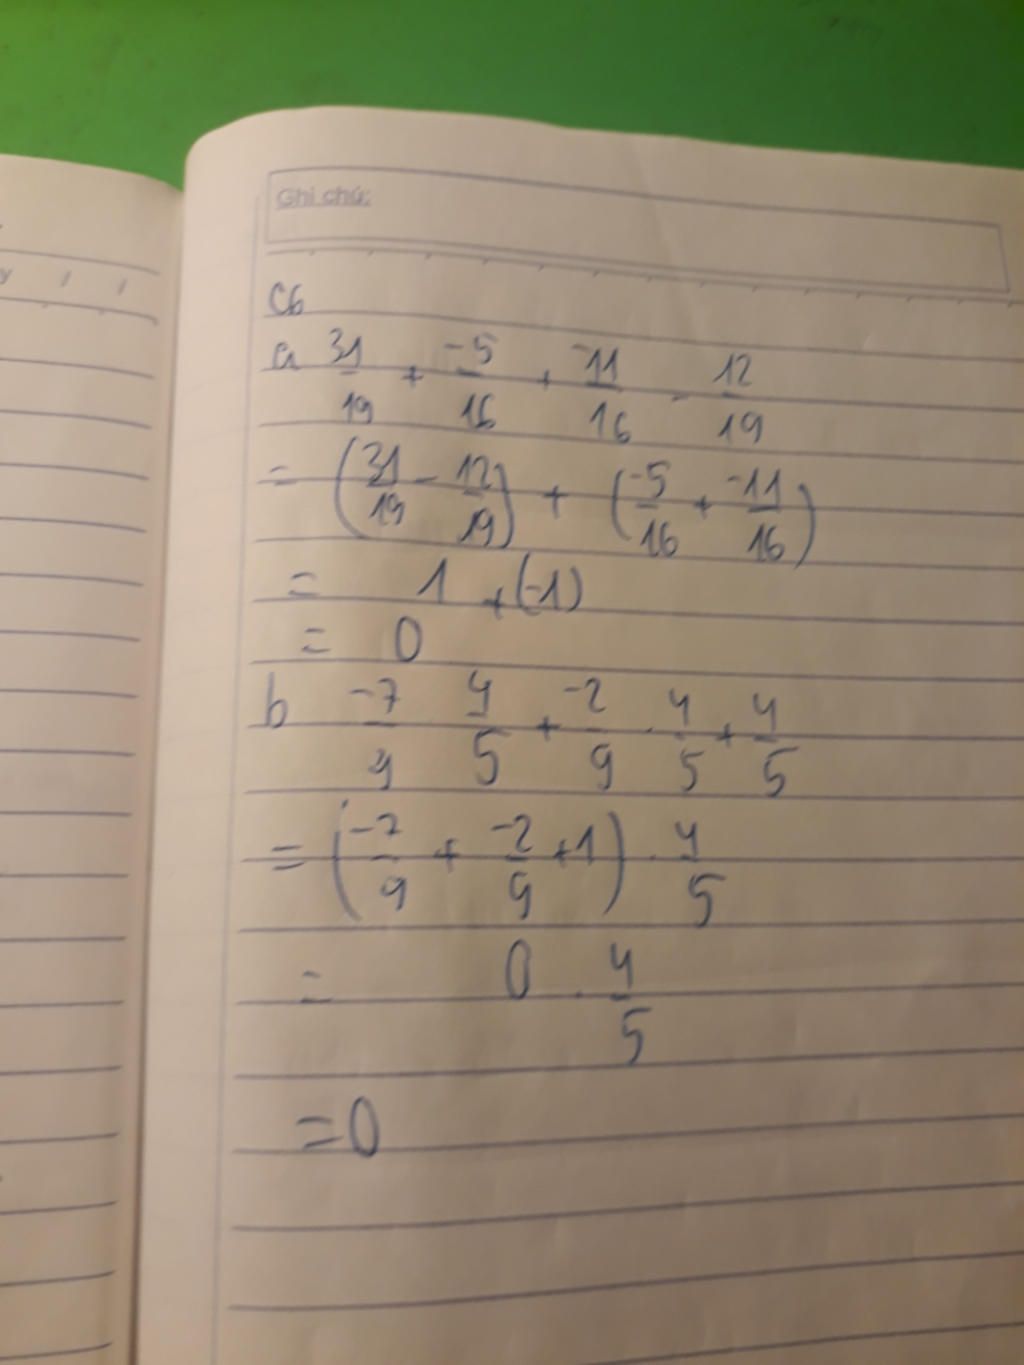 Ghi chú:
C6
a 31/19 + -5/16 + -11/16 - 12/19
= (31/19 - 12/19) + (-5/16 + -11/16)
= 1 + (-1)
= 0
b -7/9 4/5 + -2/9 . 4/5 + 4/5
= (-7/9 + -2/9 + 1) . 4/5
= 0 . 4/5
= 0